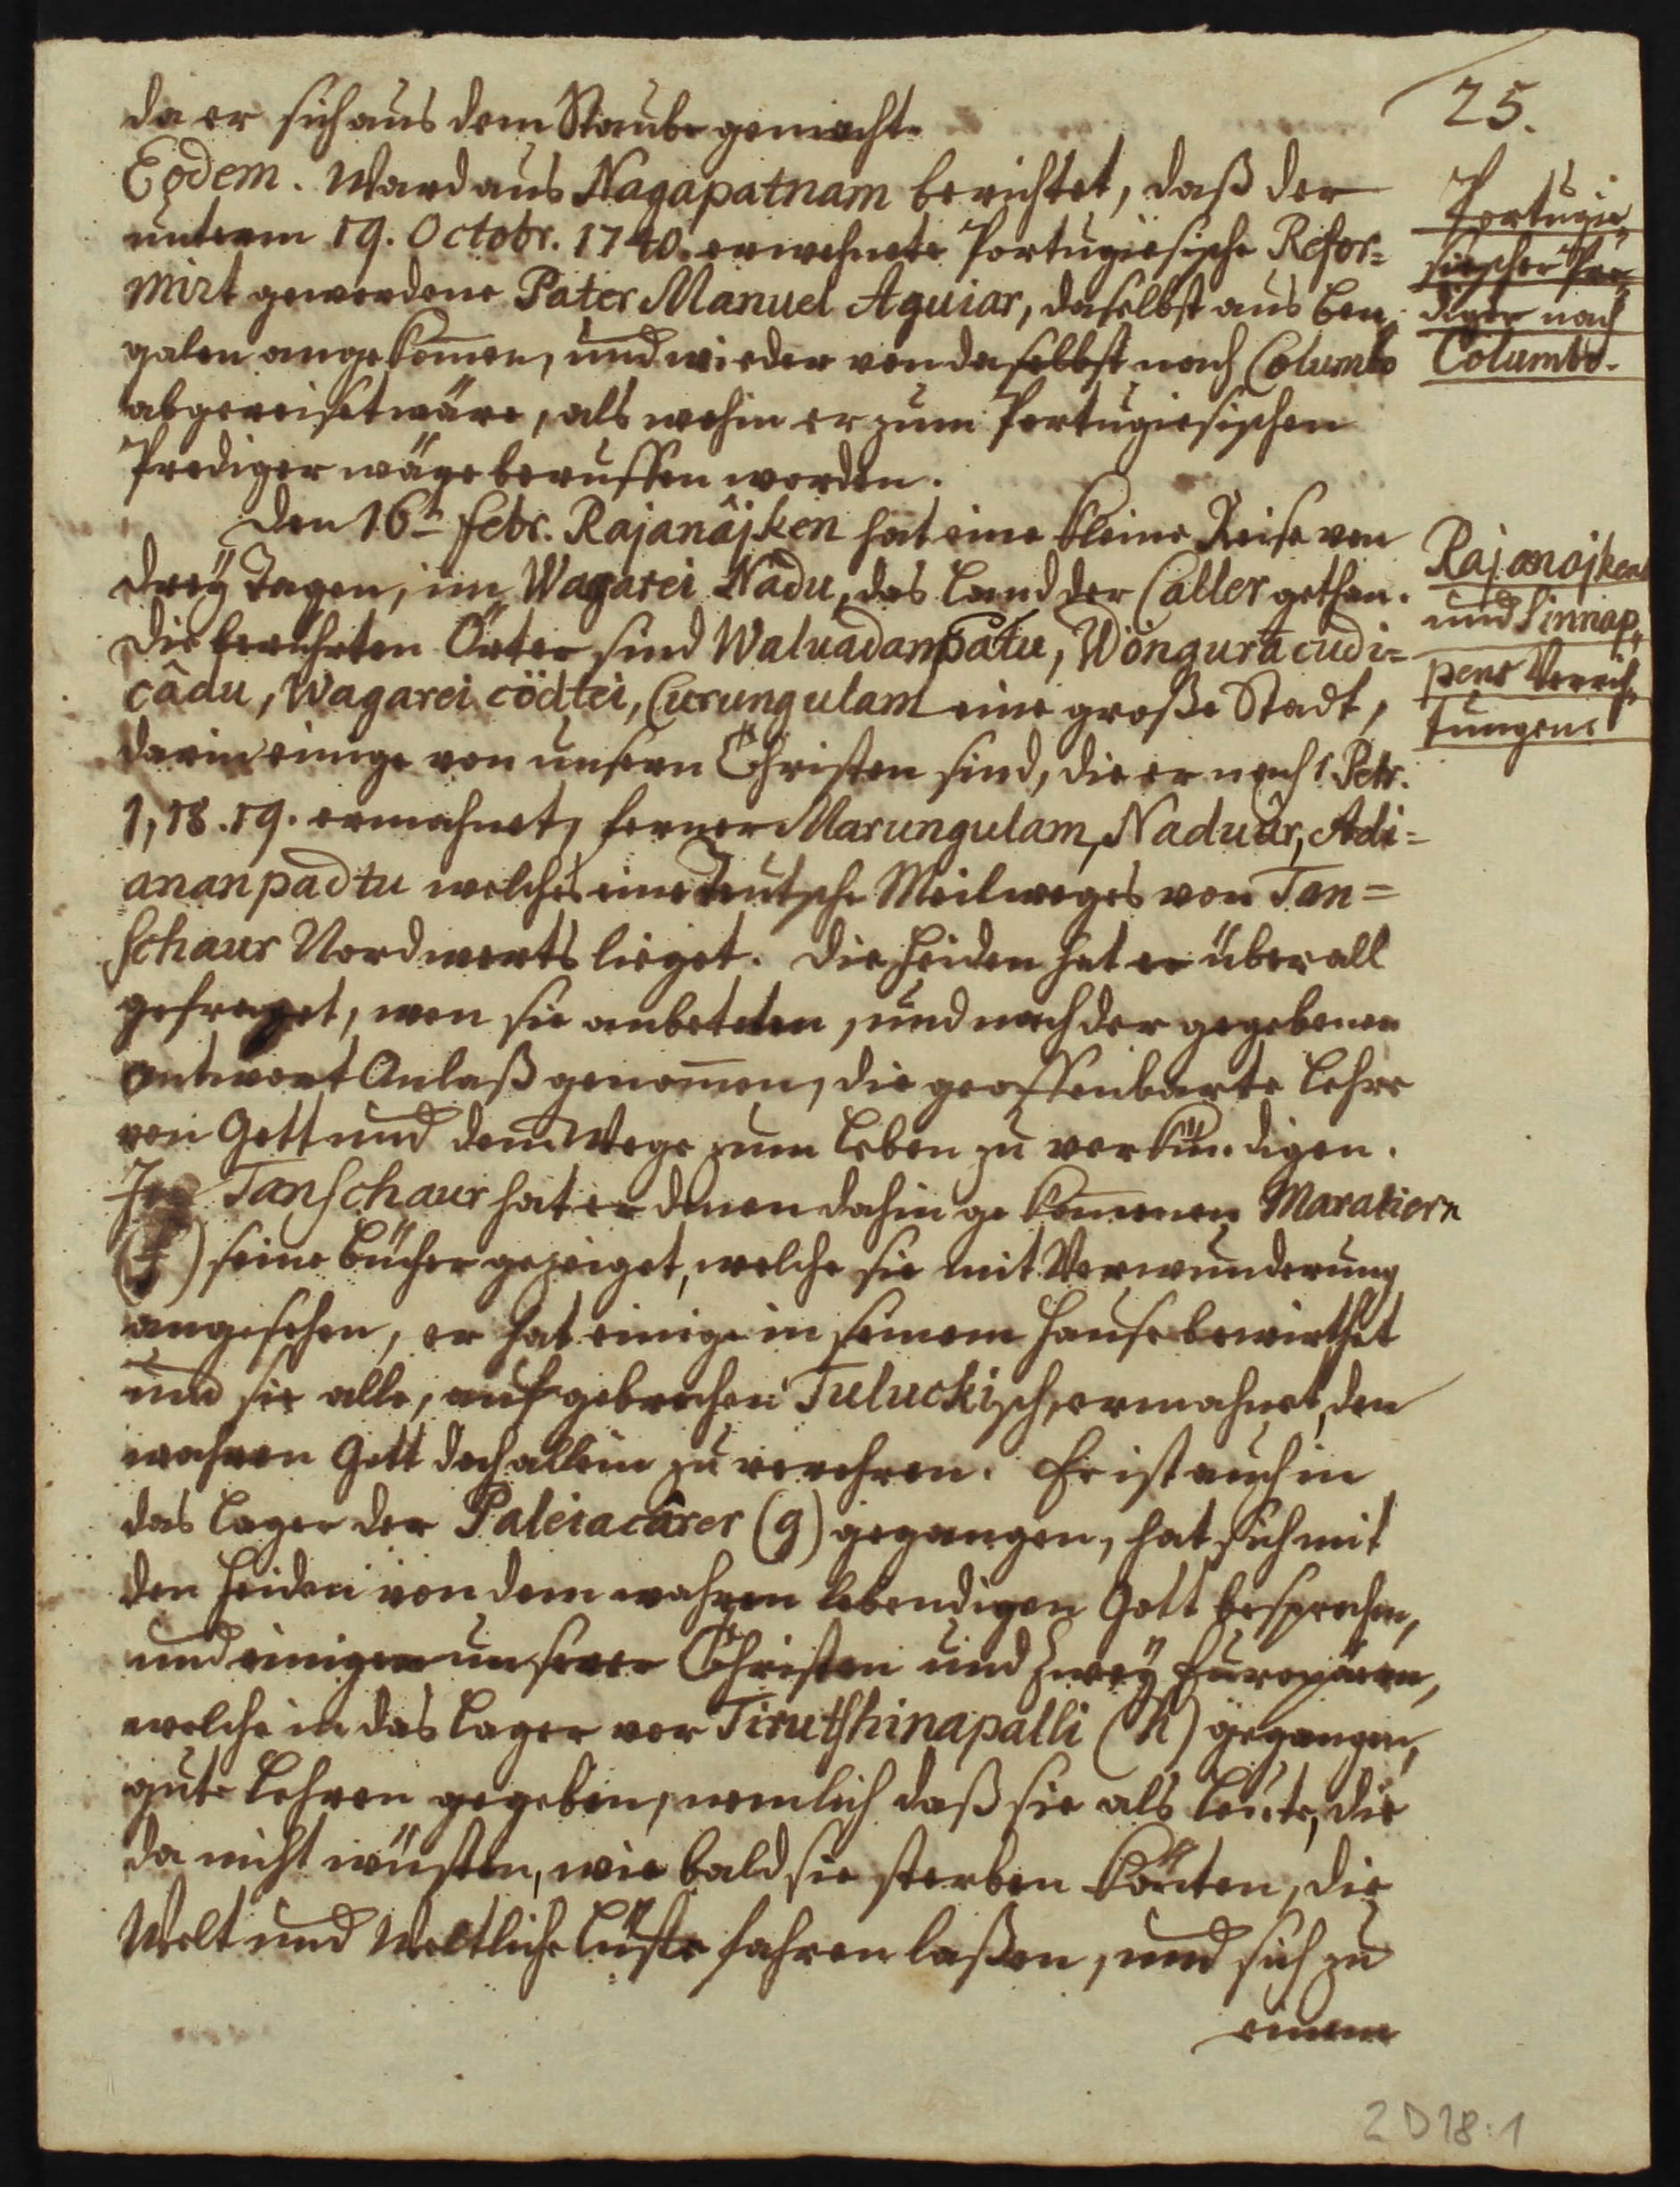 25.
da er sich aus dem Staube gemacht.
Eodem. Ward aus Nagapatnam berichtet, daß der
unterm 19. Octobr. 1740. erwehnte Portugiesische Refor=
mirt gewordene Pater Manuel Aguiar, daselbst aus Ben„
galen angekom̄en, und wieder von daselbst nach Columbo
abgereiset wäre, als wohin er zum Portugiesischen
Prediger wäre beruffen worden.
Portugie„
sischer Pre„
diger nach
Columbo.
Den 16t Febr. Rajanâjken hat eine kleine Reise von
drey Tagen, im Wagarei Nâdu, das Land der Caller gethan.
Die berührten Örter sind Waluadampâtu, Wöngurâcudi=
câdu, Wagarei cödtei, Curungulam eine große Stadt,
darin einige von unsern Christen sind, die er nach 1. Petr.
1, 18. 19. ermahnet, ferner Marungulam, Naduûr, Adi=
ananpadtu welches eine Teutsche Meilweges von Tan=
schaur Nordwerts lieget. Die Heiden hat er überall
gefraget, wen sie anbeteten, und nach der gegebenen
Antwort Anlaß genom̄en, die geoffenbarte Lehre
von Gott und dem Wege zum Leben zu verkündigen.
In Tanschaur hat er denen dahin gekom̄enen Maratiern
(f) seine Bücher gezeiget, welche sie mit Verwunderung
angesehen, er hat einige in seinem Hause bewirthet
und sie alle, auf gebrochen Tuluckisch, ermahnet, den
wahren Gott doch allein zu verehren. Er ist auch in
das Lager der Paleiacârer (g) gegangen, hat sich mit
den Heiden von dem wahren lebendigen Gott besprochen,
und einigen unserer Christen und zwey Europäern,
welche in das Lager vor Tirutshinapalli (h) gegangen,
gute Lehren gegeben, nemlich daß sie als Leute, die
da nicht wüsten, wie bald sie sterben könten, die
Welt und Weltliche Lüste fahren laßen, und sich zu
einem
Rajanajkens
und Sinnap„
pens Verrich„
tungen.
2 D 18:1